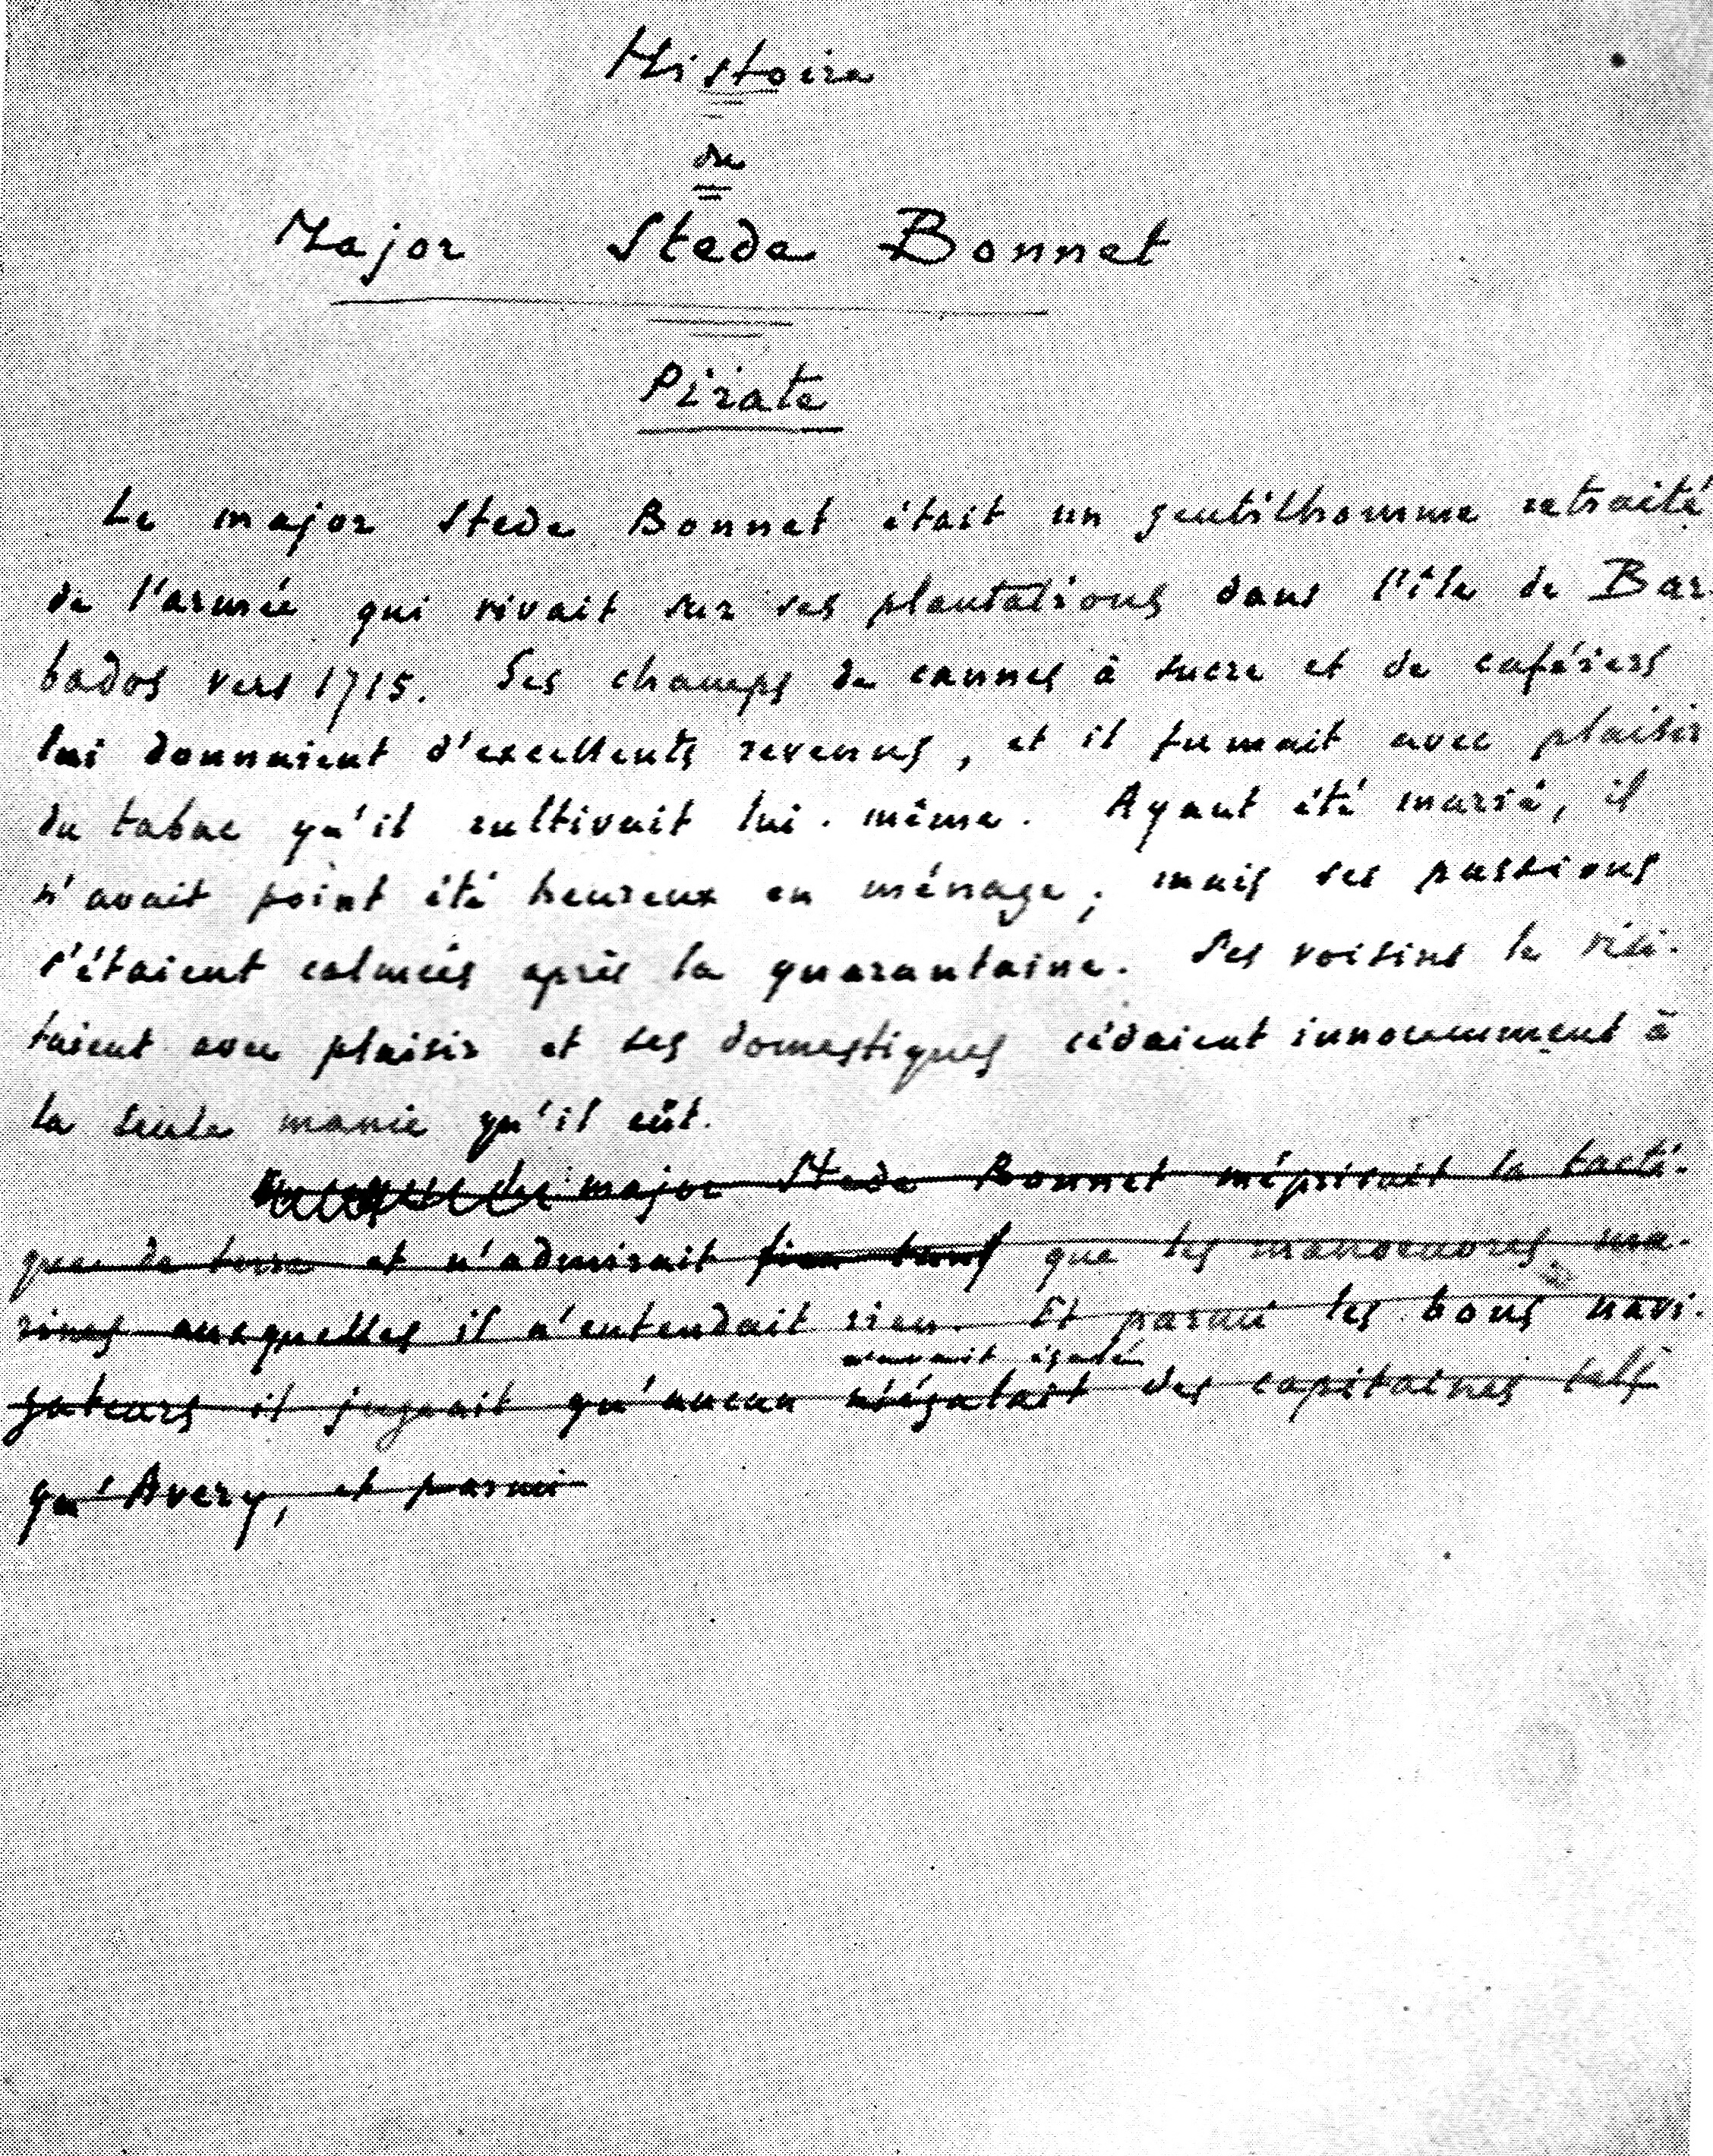 Histoire
du
Major Stede Bonnet
Pirate
Le major Stede Bonnet était un gentilhomme retraité
de l'armée qui vivait sur ses plantations dans l'île de Bar-
bados vers 1715. Ses champs de cannes à sucre et de caféiers
lui donnaient d'excellents revenus, et il fumait avec plaisir
du tabac qu'il cultivait lui-même. Ayant été marié, il
n'avait point été heureux en ménage; mais ses passions
s'étaient calmées après la quarantaine. Ses voisins le visi-
taient avec plaisir et ses domestiques cédaient innocemment à
la seule manie qu'il eût.
major Stede Bonnet méprisait la tacti-
que de terre et n'admirait que les manoeuvres ma-
rines auxquelles il n'entendait rien. Et parmi les bons navi-
n'avait égalé
gateurs il jugeait qu'aucun n'égalait des capitaines tels
qu'Avery, et parmi